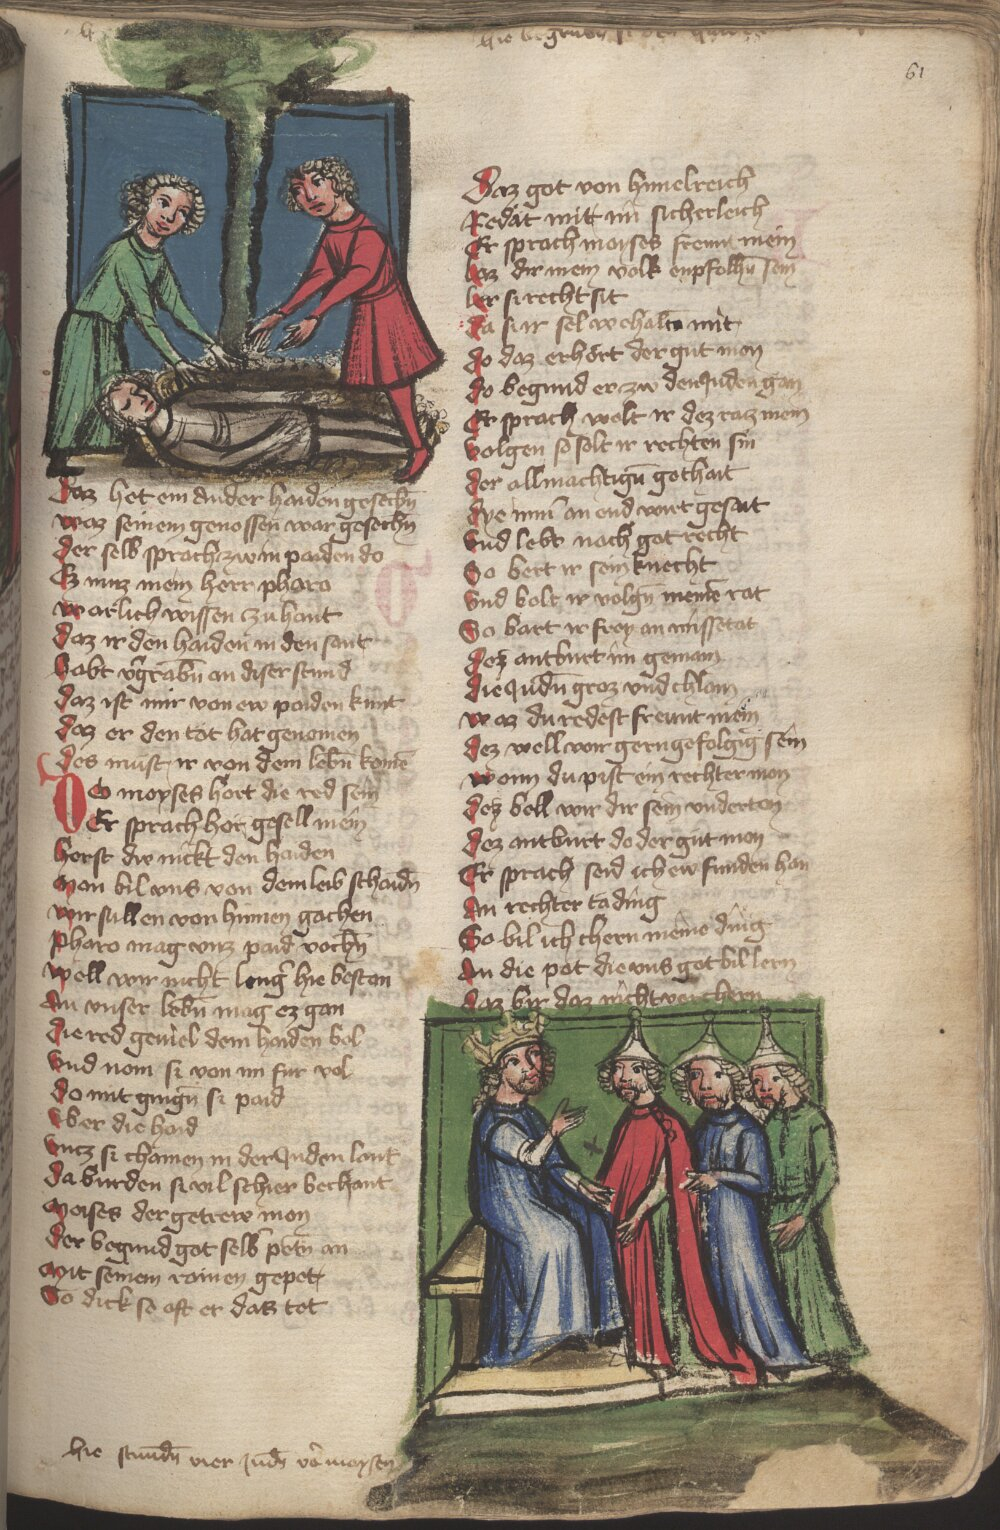 hie begrubn si den haiden
61
Daz het ein ander haiden gesechn
waz seinem genossen war geschechn
Der selb sprach zw in paiden do
Ez muz mein herr pharo
warlich wissen zu hant
Daz ir den haiden in den sant
habt vergrabn an diser stund
Daz ist mir von ew paiden kunt
Daz er den tot hat genomen
Des must ir von dem lebn komen
Do moyses hort die red sein
Er sprach hor gesell mein
horst dw nicht den haiden
Man bil vns von dem leib schaidn
wir sullen von hinnen gachen
Pharo mag vnz paid vochn
well wir nicht leng hie bestan
An vnser lebn mag ez gan
Die red geviel dem haiden bol
Vnd nom si von im fur vol
Do mit gingn si paid
Vber die haid
Vntz si chamen in der Juden lant
Da burden si vil schier bechant
Moises der getrew mon
Der begund got selb petn an
Mit seinem rainen gepet
So dick so oft er daz tet
hie stundn vier Judn vor moysen
Daz got von himelreich
Redat mitt im sicherleich
Er sprach moyses freunt mein
Laz dir mein volk enpfolhn sein
Ler si recht sit
Da si ir sel w ehaltn mit
Do daz erhort der gut mon
Do begund er zw den Juden gan
Er sprach welt ir dez ratz mein
Volgen so solt ir rechten sin
Der allmachtign gothait
Dye nim an end wirt gesait
Vnd lebt nach got recht
So bert ir sein knecht
Vnd bolt ir volgn meinem rat
So bart ir frey an missetat
Dez antburt im gemain
Die Judn groz vnd chlain
waz du redest freunt mein
Dez well wir gern gefolgig sein
wonn du pist ein rechter mon
Dez bell wir dir sein vnderton
Dez antburt do der gut mon
Er sprach seid ich ew funden han
An rechter tading
So bil ich chern meine ding
An die pot die vns got bil lern
Daz bir daz nicht verchern